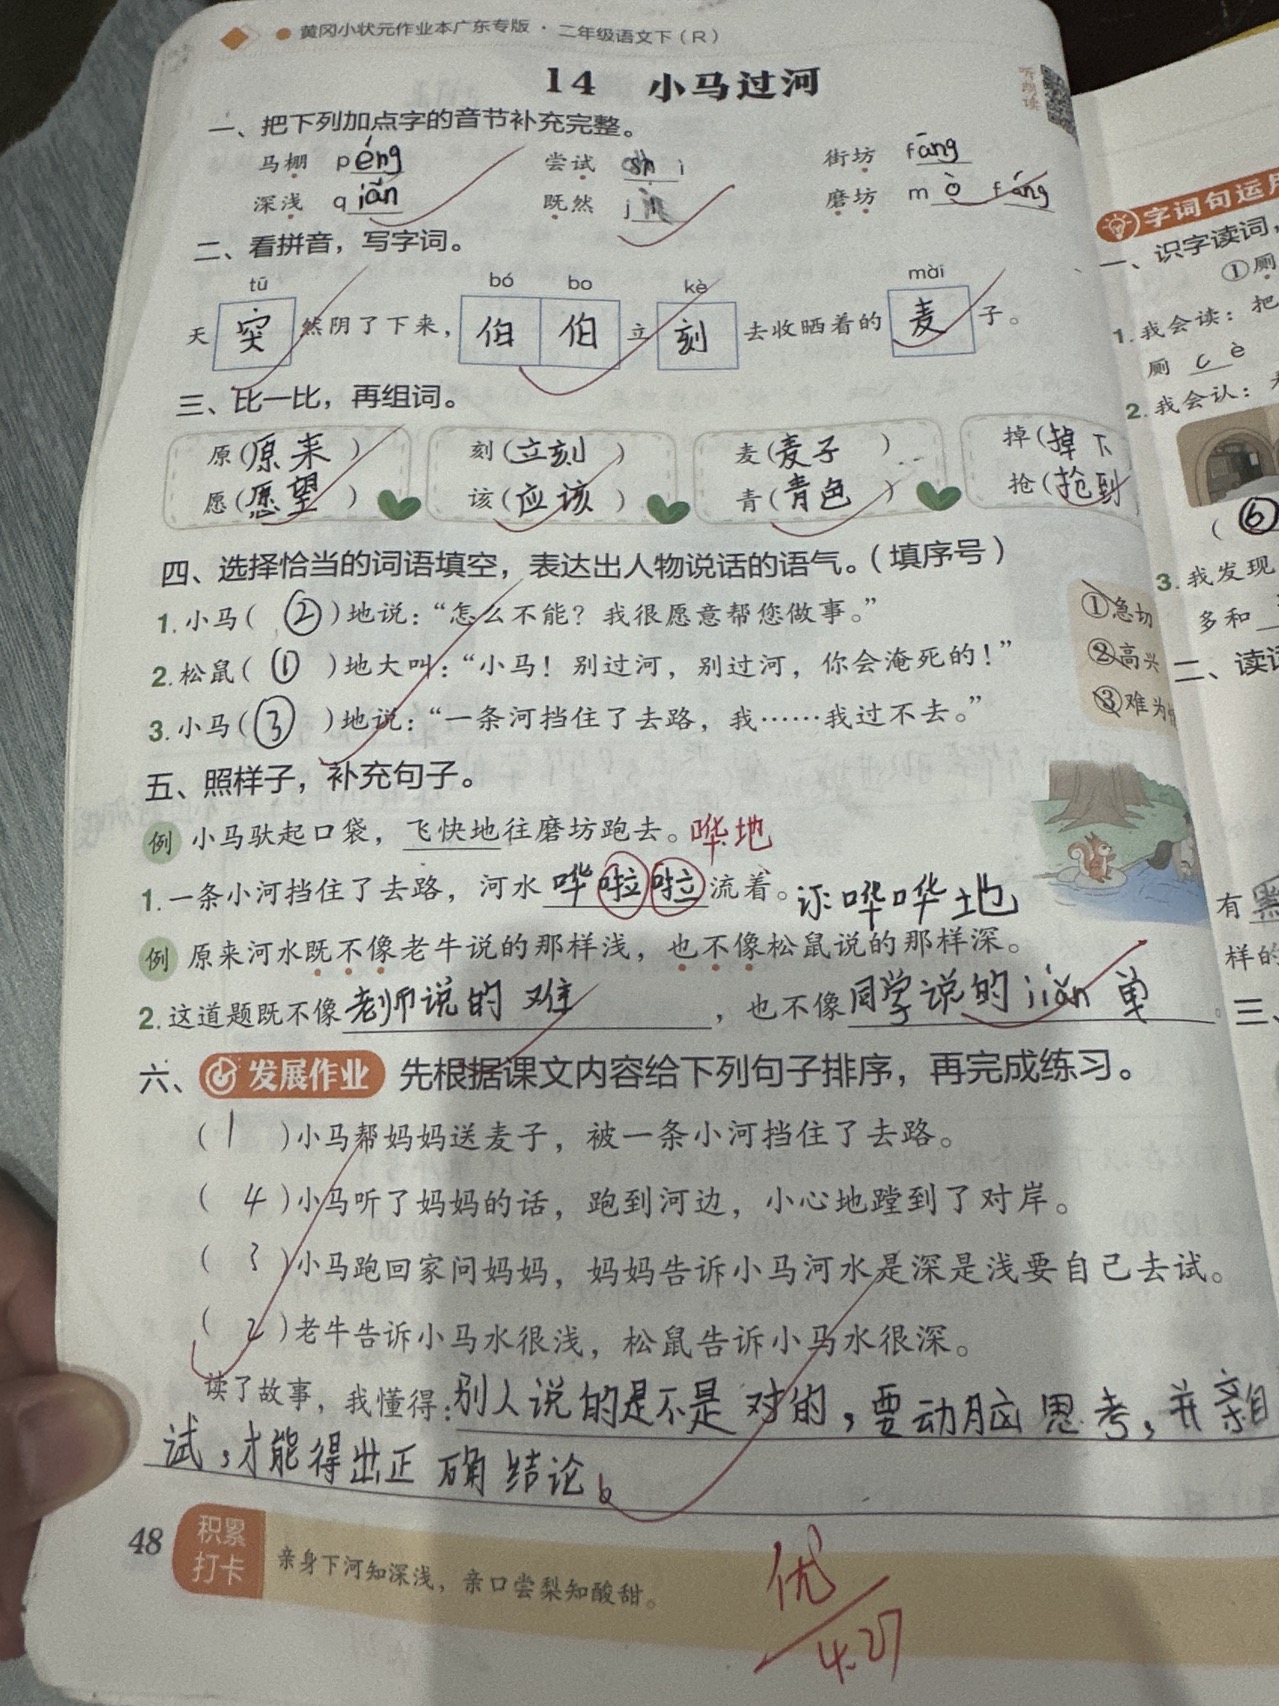 黄冈小状元作业本广东专版·二年级语文下（R）
14 小马过河
听朗读
一、把下列加点字的音节补充完整。
马棚 péng 尝试 shì 街坊 fāng
深浅 qiǎn 既然 jì 磨坊 mò fáng
二、看拼音，写字词。
tū bó bo kè mài
天突然阴了下来，伯伯立刻去收晒着的麦子。
三、比一比，再组词。
原（原来） 刻（立刻） 麦（麦子） 掉（掉下
愿（愿望） 该（应该） 青（青色） 抢（抢到
四、选择恰当的词语填空，表达出人物说话的语气。（填序号）
1.小马（②）地说：“怎么不能？我很愿意帮您做事。”
2.松鼠（①）地大叫：“小马！别过河，别过河，你会淹死的！”
3.小马（③）地说：“一条河挡住了去路，我……我过不去。”
①急切
②高兴
③难为情
五、照样子，补充句子。
例 小马驮起口袋，飞快地往磨坊跑去。哗地
1.一条小河挡住了去路，河水哗啦啦流着。 哗哗地
例 原来河水既不像老牛说的那样浅，也不像松鼠说的那样深。
2.这道题既不像老师说的难，也不像同学说的jiǎn单。
六、发展作业 先根据课文内容给下列句子排序，再完成练习。
（1）小马帮妈妈送麦子，被一条小河挡住了去路。
（4）小马听了妈妈的话，跑到河边，小心地蹚到了对岸。
（3）小马跑回家问妈妈，妈妈告诉小马河水是深是浅要自己去试。
（2）老牛告诉小马水很浅，松鼠告诉小马水很深。
读了故事，我懂得：别人说的是不是对的，要动脑思考，并亲自
试，才能得出正确结论。
48 积累打卡 亲身下河知深浅，亲口尝梨知酸甜。
优
4.27
字词句运用
一、识字读词，
①厕
1.我会读：把
厕 cè
2.我会认：
（⑥
3.我发现
多和
二、读
有黑
样的
三、